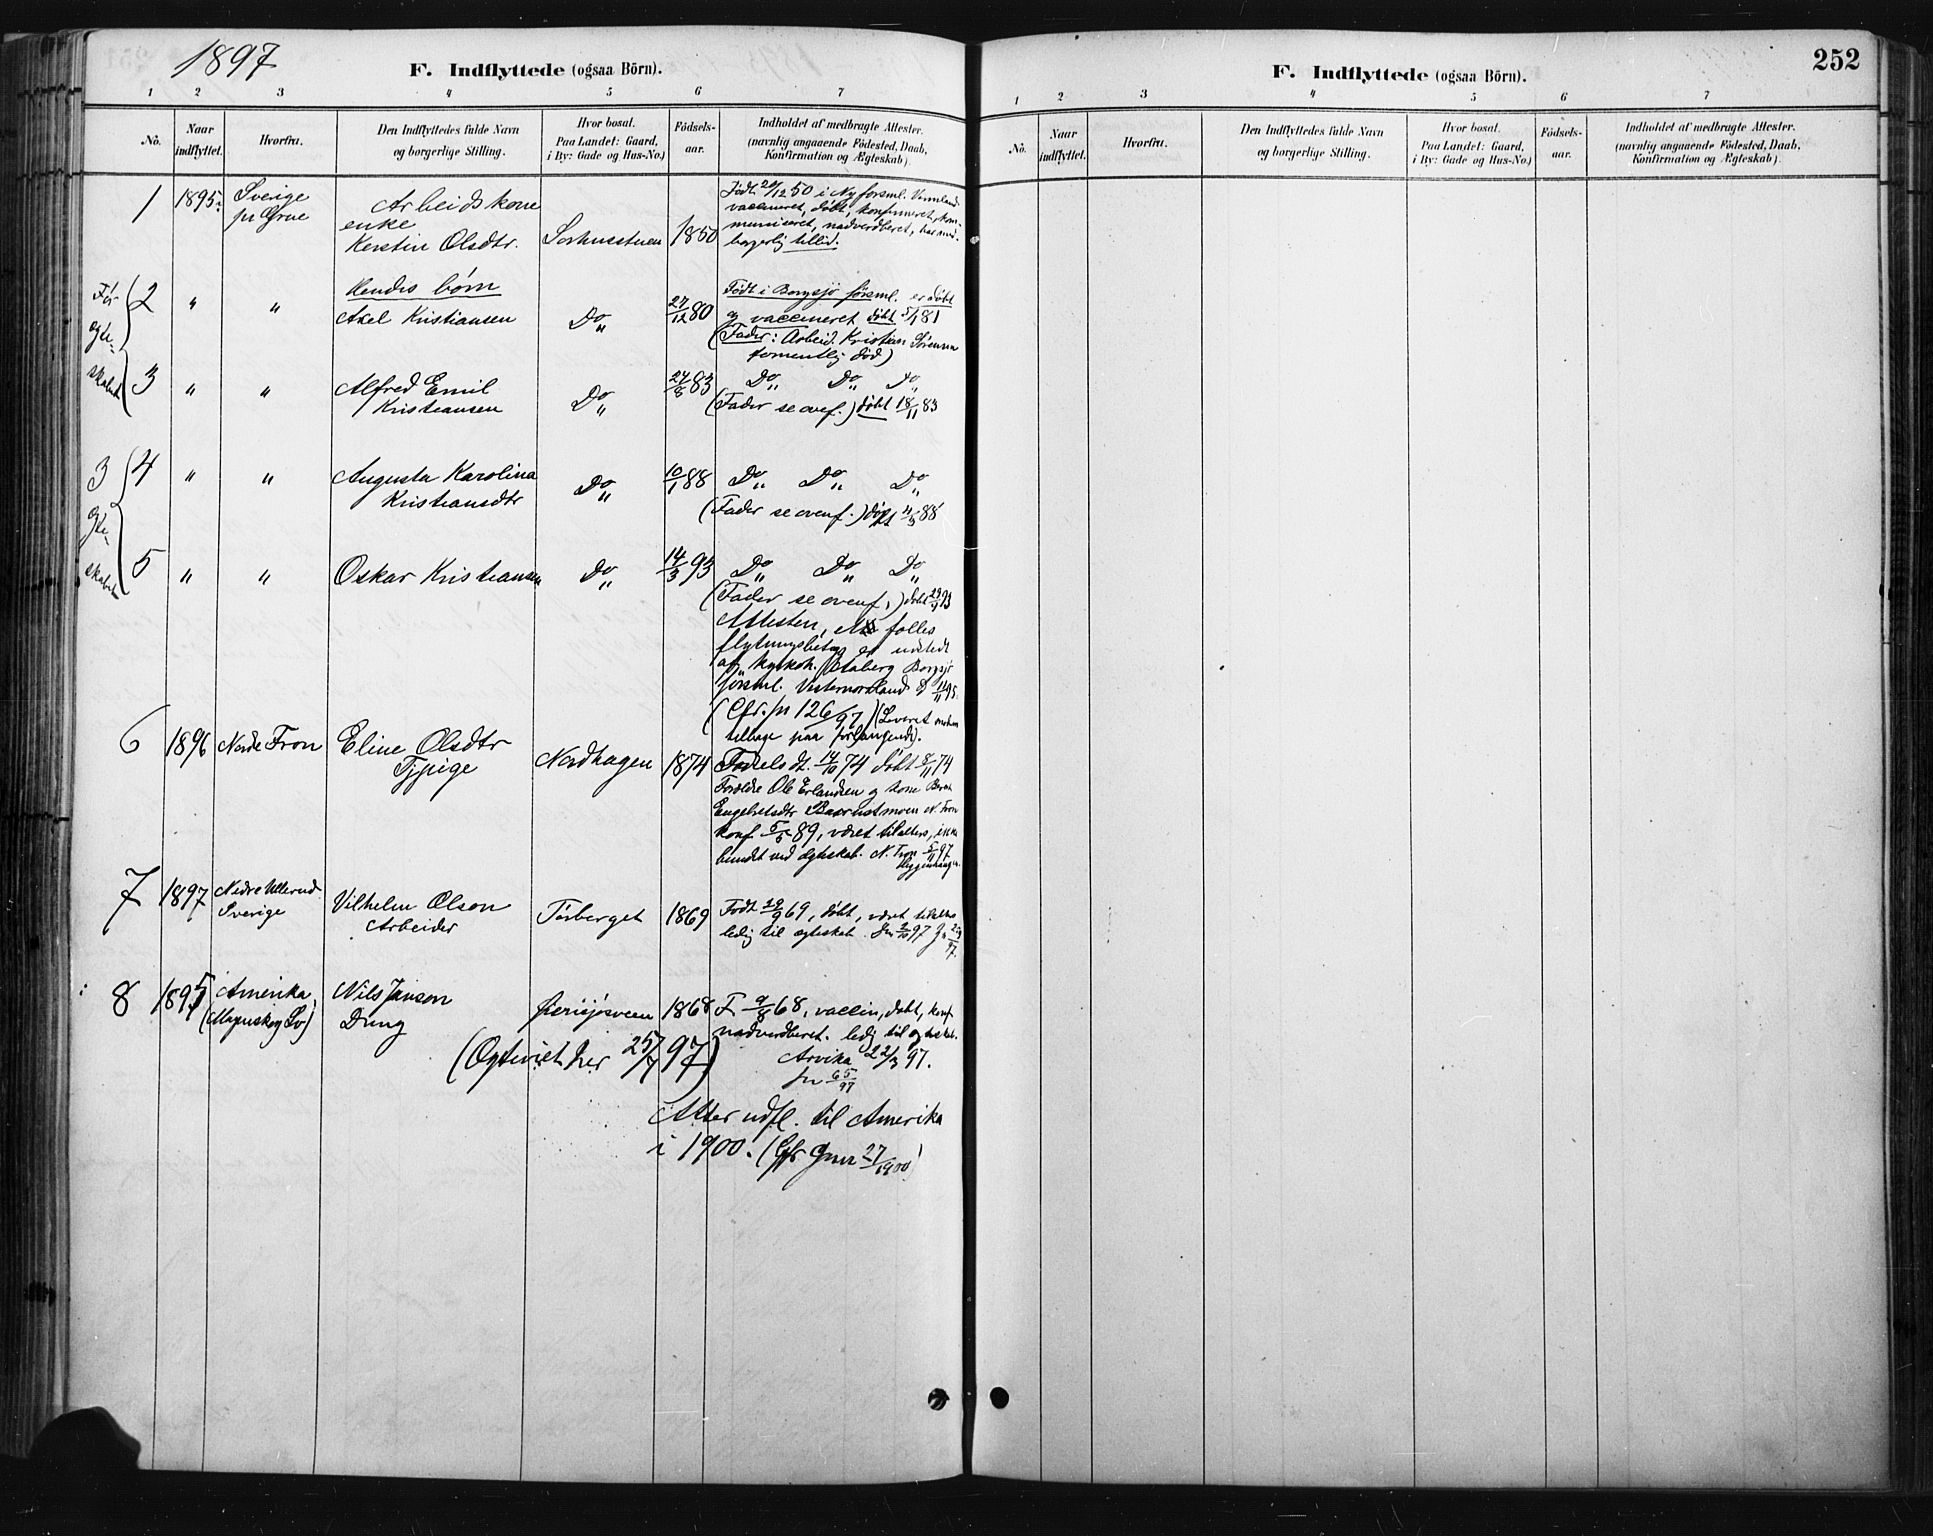 1897
F. Indflyttede (ogsaa Börn).
1 2 3 4 5 6 7
No.
Naar indflyttet.
Hvorfra.
Den Indflyttedes fulde Navn
og borgerlige Stilling.
Hvor bosat.
Paa Landet: Gaard,
i By: Gade og Hus-No.)
Fødsels-
aar.
Indholdet af medbragte Attester.
(navnlig angaaende Fødested, Daab,
Konfirmation og Ægteskab).
1 1895 Sverige
pr Grue
Arbeidskone
enke
Kerstin Olsdtr. Sorhusstuen 1850
Født 20/12 50 i Ny forsml. Vermland
vaccineret, døbt, konfirmeret, kom-
municeret, nadverdberet, har med-
borgerlig tillid.
Før
ægte-
skabet
2 " " Hendes børn
Axel Kristiansen Do " 27/12 80
Født i Borgsjö försml. er døbt
og vaccineret døbt 5/1 81
(Fader: Arbeid. Kristian Sörensen
formentlig død)
3 " " Alfred Emil
Kristiansen Do " 24/6 83
Do " Do " Do "
(Fader se ovenf.) døbt 18/11 83
3
ægte-
skabet
4 " " Augusta Karolina
Kristiansdtr Do " 10/1 88
Do " Do " Do "
(Fader se ovenf.) døbt 88
5 " " Oskar Kristiansen Do " 14/3 93
Do " Do " Do "
(Fader se ovenf.) døbt 93
Attesten, fælles
flytningsbetyg er udstedt
af Kyrkoh. Borgsjö
försml. Vesternorrland D 95.
(Cfr. jn 126/97) (Leveret
tilbage paa forlangende).
6 1896 Nordre Fron Eline Olsdtr
Tjpige Nordhagen 1874
Fødselsdt. 14/10 74 døbt 8/11 74
Forældre Ole Erlandsen og kone Berit
Engebretsdtr N. Fron
Konf. 89, været tilalters, ikke
bundet ved ægteskab. N. Fron 97
7 1897 Nedre Ullerud
Sverige Vilhelm Olson
Arbeider Torberget 1869
Født 69, døbt, været tilalters
ledig til ægteskab. 97
8 1895 Amerika,
(Mangskog Sv) Nils Janson
Dreng 1868
F. 68, vaccin, døbt, konf.
nadverdberet. ledig til ægteskab.
(Ægteviet her 25/7 97)
Arvika 22/3 97.
jn 65/97
Atter udfl. til Amerika
i 1900. (Cfr 27/1900)
252
F. Indflyttede (ogsaa Börn).
1 2 3 4 5 6 7
No.
Naar
indflyttet.
Hvorfra.
Den Indflyttedes fulde Navn
og borgerlige Stilling.
Hvor bosat.
Paa Landet: Gaard,
i By: Gade og Hus-No.)
Fødsels-
aar.
Indholdet af medbragte Attester.
(navnlig angaaende Fødested, Daab,
Konfirmation og Ægteskab).